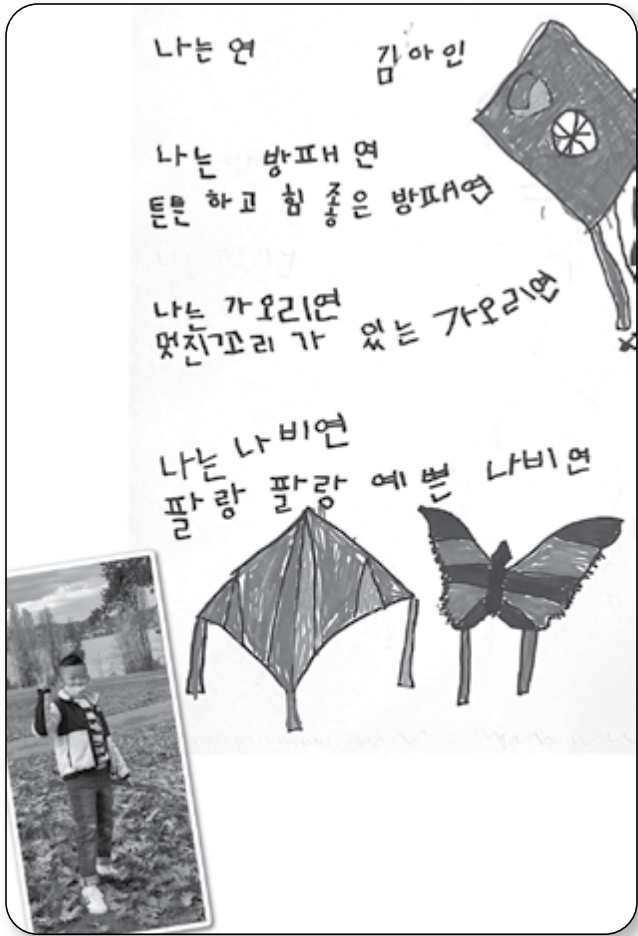 나는 연 김아인
나는 방패 연
튼튼 하고 힘 좋은 방패연
나는 가오리연
멋진꼬리 가 있는 가오리연
나는 나비연
팔랑 팔랑 예쁜 나비연